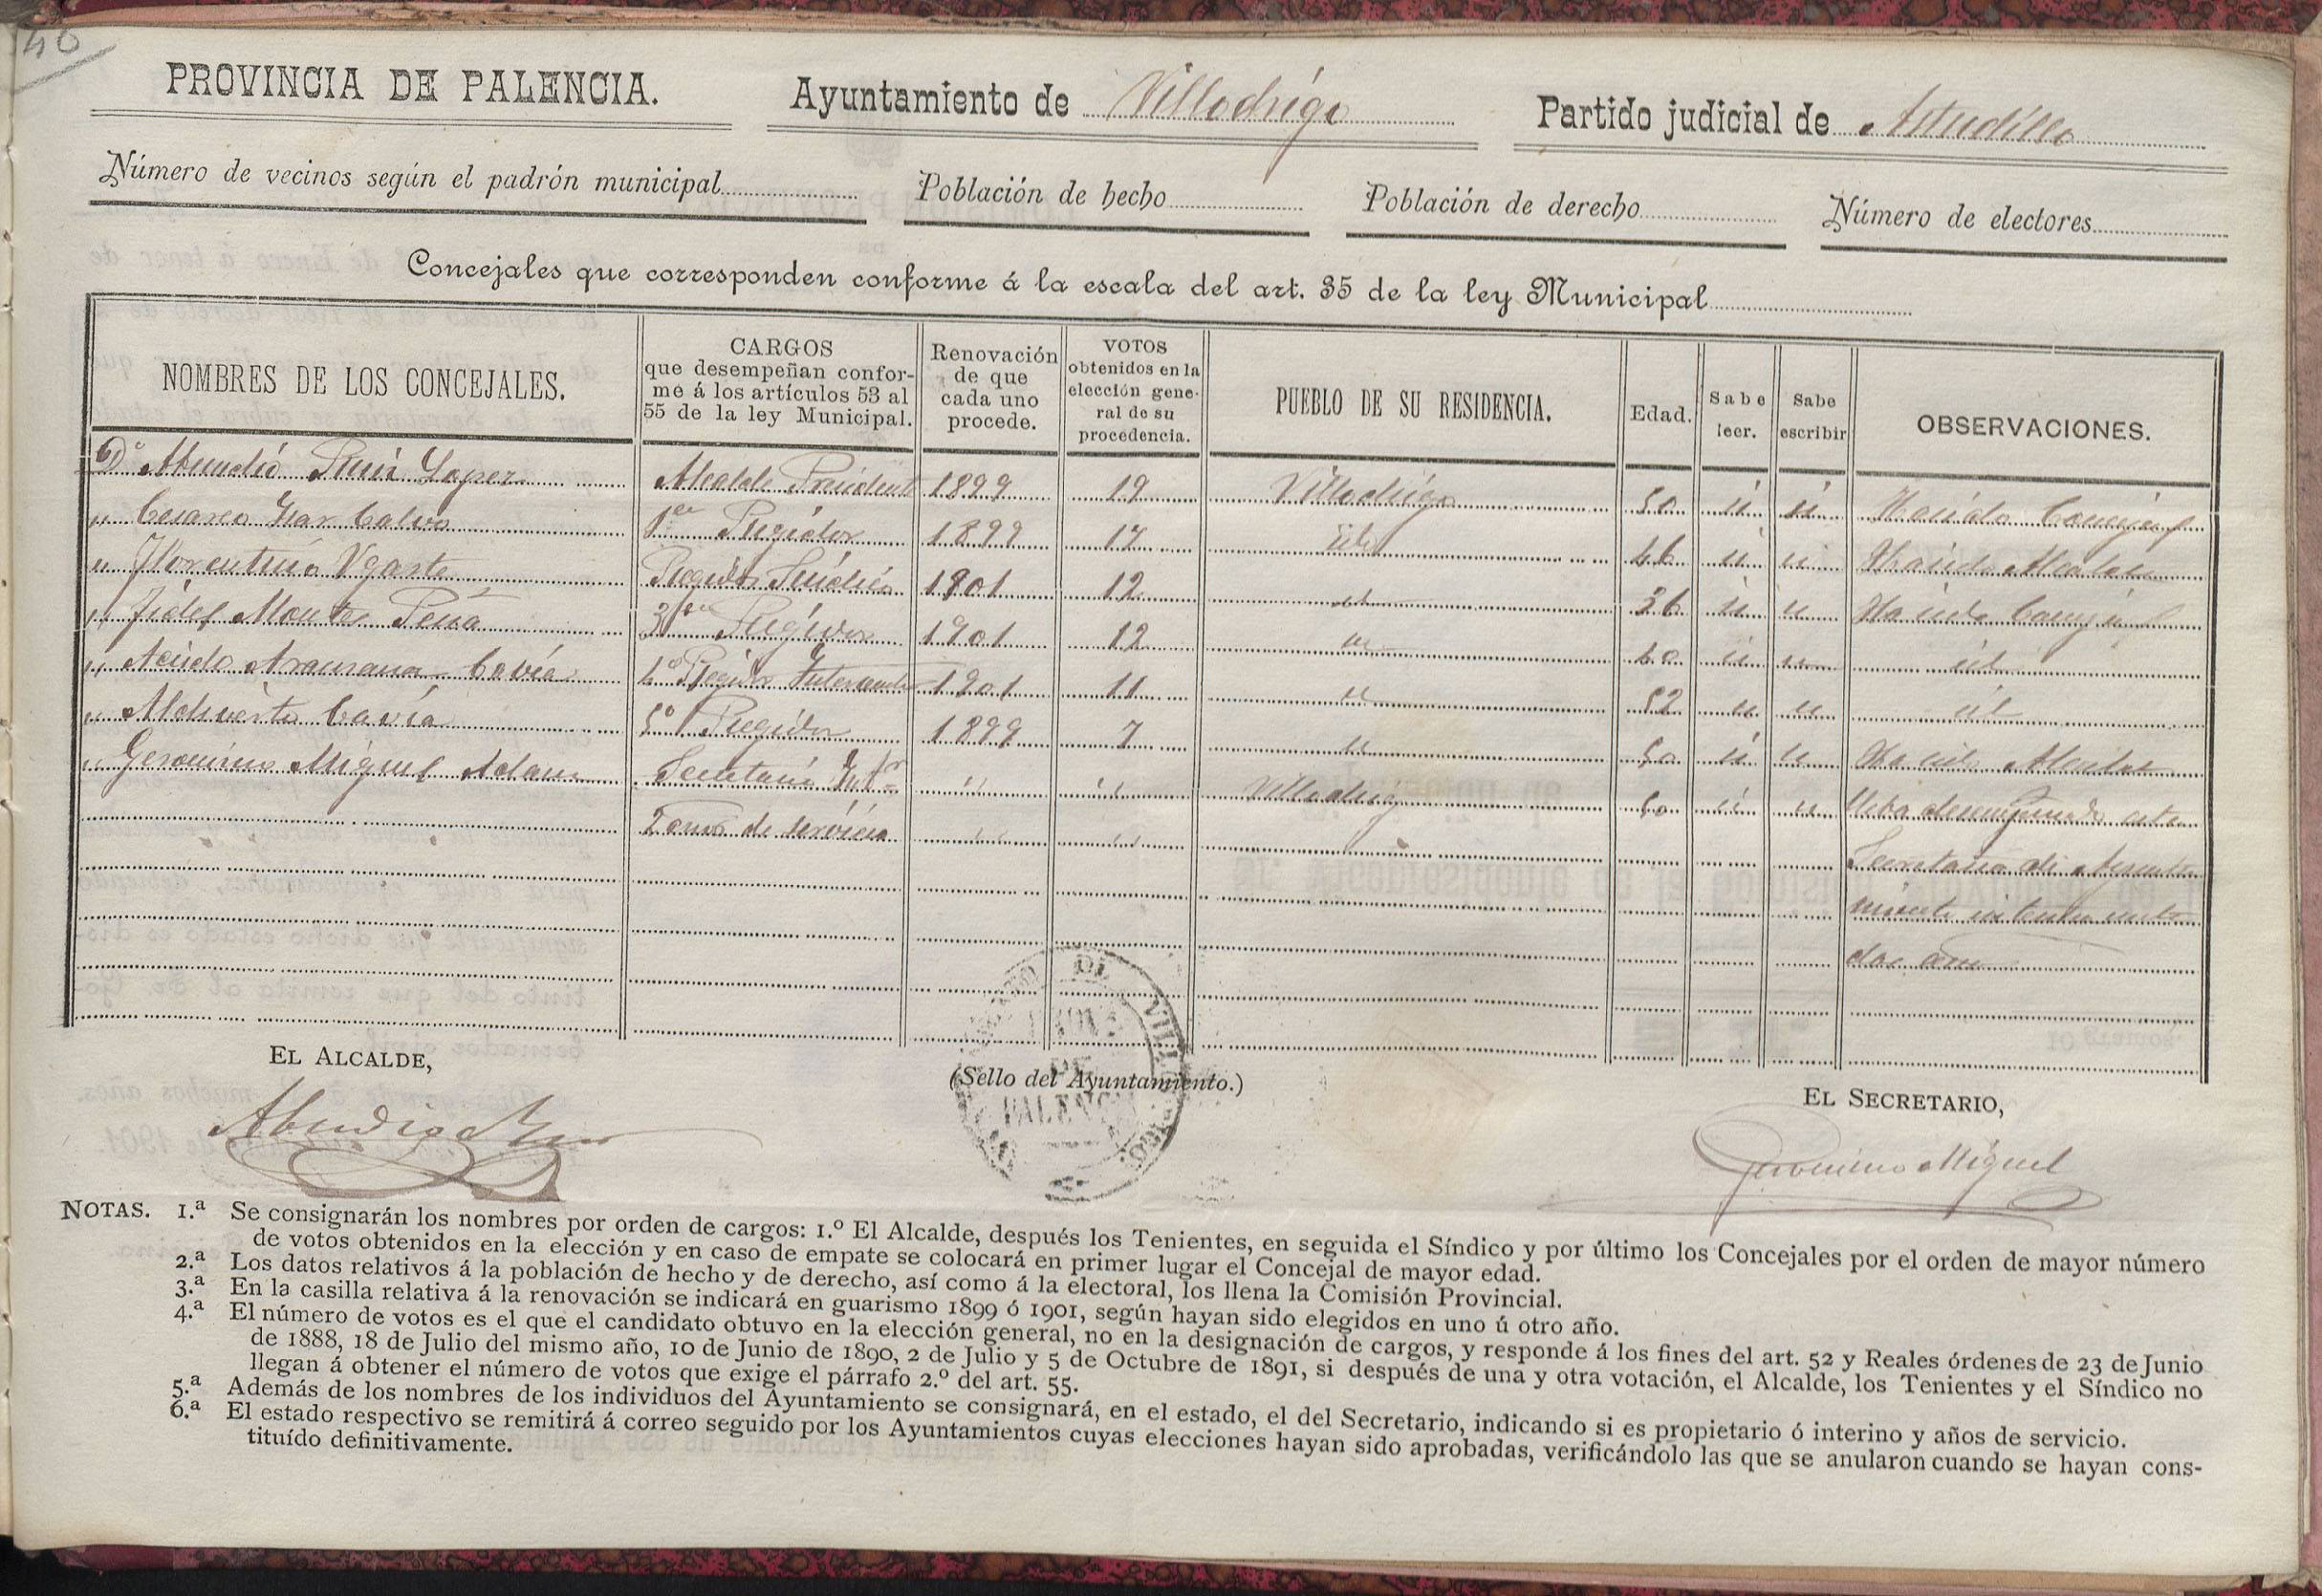 40
PROVINCIA DE PALENCIA. Ayuntamiento de Villodrigo Partido judicial de Astudillo
Número de vecinos según el padrón municipal Población de hecho Población de derecho Número de electores
Concejales que corresponden conforme á la escala del art. 35 de la ley Municipal
NOMBRES DE LOS CONCEJALES. CARGOS que desempeñan conforme á los artículos 53 al 55 de la ley Municipal. Renovación de que cada uno procede. VOTOS obtenidos en la elección general de su procedencia. PUEBLO DE SU RESIDENCIA. Edad. Sabe leer. Sabe escribir OBSERVACIONES.
Dº Abundio Lopez Alcalde Presidente 1899 19 Villodrigo 50 si si Ha sido Concejal
" Cesareo Calvo 1er Regidor 1899 17 id 46 si si Ha sido Alcalde
" Florentino Ugarte Regidor Sindico 1901 12 id 36 si si Ha sido Concejal
" Fidel Montes Peña 3er Regidor 1901 12 40 si id
" Acisclo Aramana Cavia 4º Regidor Interventor 1901 11 52 id
" Cavia 5º Regidor 1899 7 50 si Ha sido Alcalde
" Geronimo Miguel Adan Secretario " " Villodrigo 50 si
2 años de servicio " "
Secretario de
dos años
EL ALCALDE, (Sello del Ayuntamiento.) EL SECRETARIO,
DE VILLODRIGO
DE
PALENCIA
Abundio Geronimo Miguel
NOTAS. 1.ª Se consignarán los nombres por orden de cargos: 1.º El Alcalde, después los Tenientes, en seguida el Síndico y por último los Concejales por el orden de mayor número
de votos obtenidos en la elección y en caso de empate se colocará en primer lugar el Concejal de mayor edad.
2.ª Los datos relativos á la población de hecho y de derecho, así como á la electoral, los llena la Comisión Provincial.
3.ª En la casilla relativa á la renovación se indicará en guarismo 1899 ó 1901, según hayan sido elegidos en uno ú otro año.
4.ª El número de votos es el que el candidato obtuvo en la elección general, no en la designación de cargos, y responde á los fines del art. 52 y Reales órdenes de 23 de Junio
de 1888, 18 de Julio del mismo año, 10 de Junio de 1890, 2 de Julio y 5 de Octubre de 1891, si después de una y otra votación, el Alcalde, los Tenientes y el Síndico no
llegan á obtener el número de votos que exige el párrafo 2.º del art. 55.
5.ª Además de los nombres de los individuos del Ayuntamiento se consignará, en el estado, el del Secretario, indicando si es propietario ó interino y años de servicio.
6.ª El estado respectivo se remitirá á correo seguido por los Ayuntamientos cuyas elecciones hayan sido aprobadas, verificándolo las que se anularon cuando se hayan cons-
tituído definitivamente.